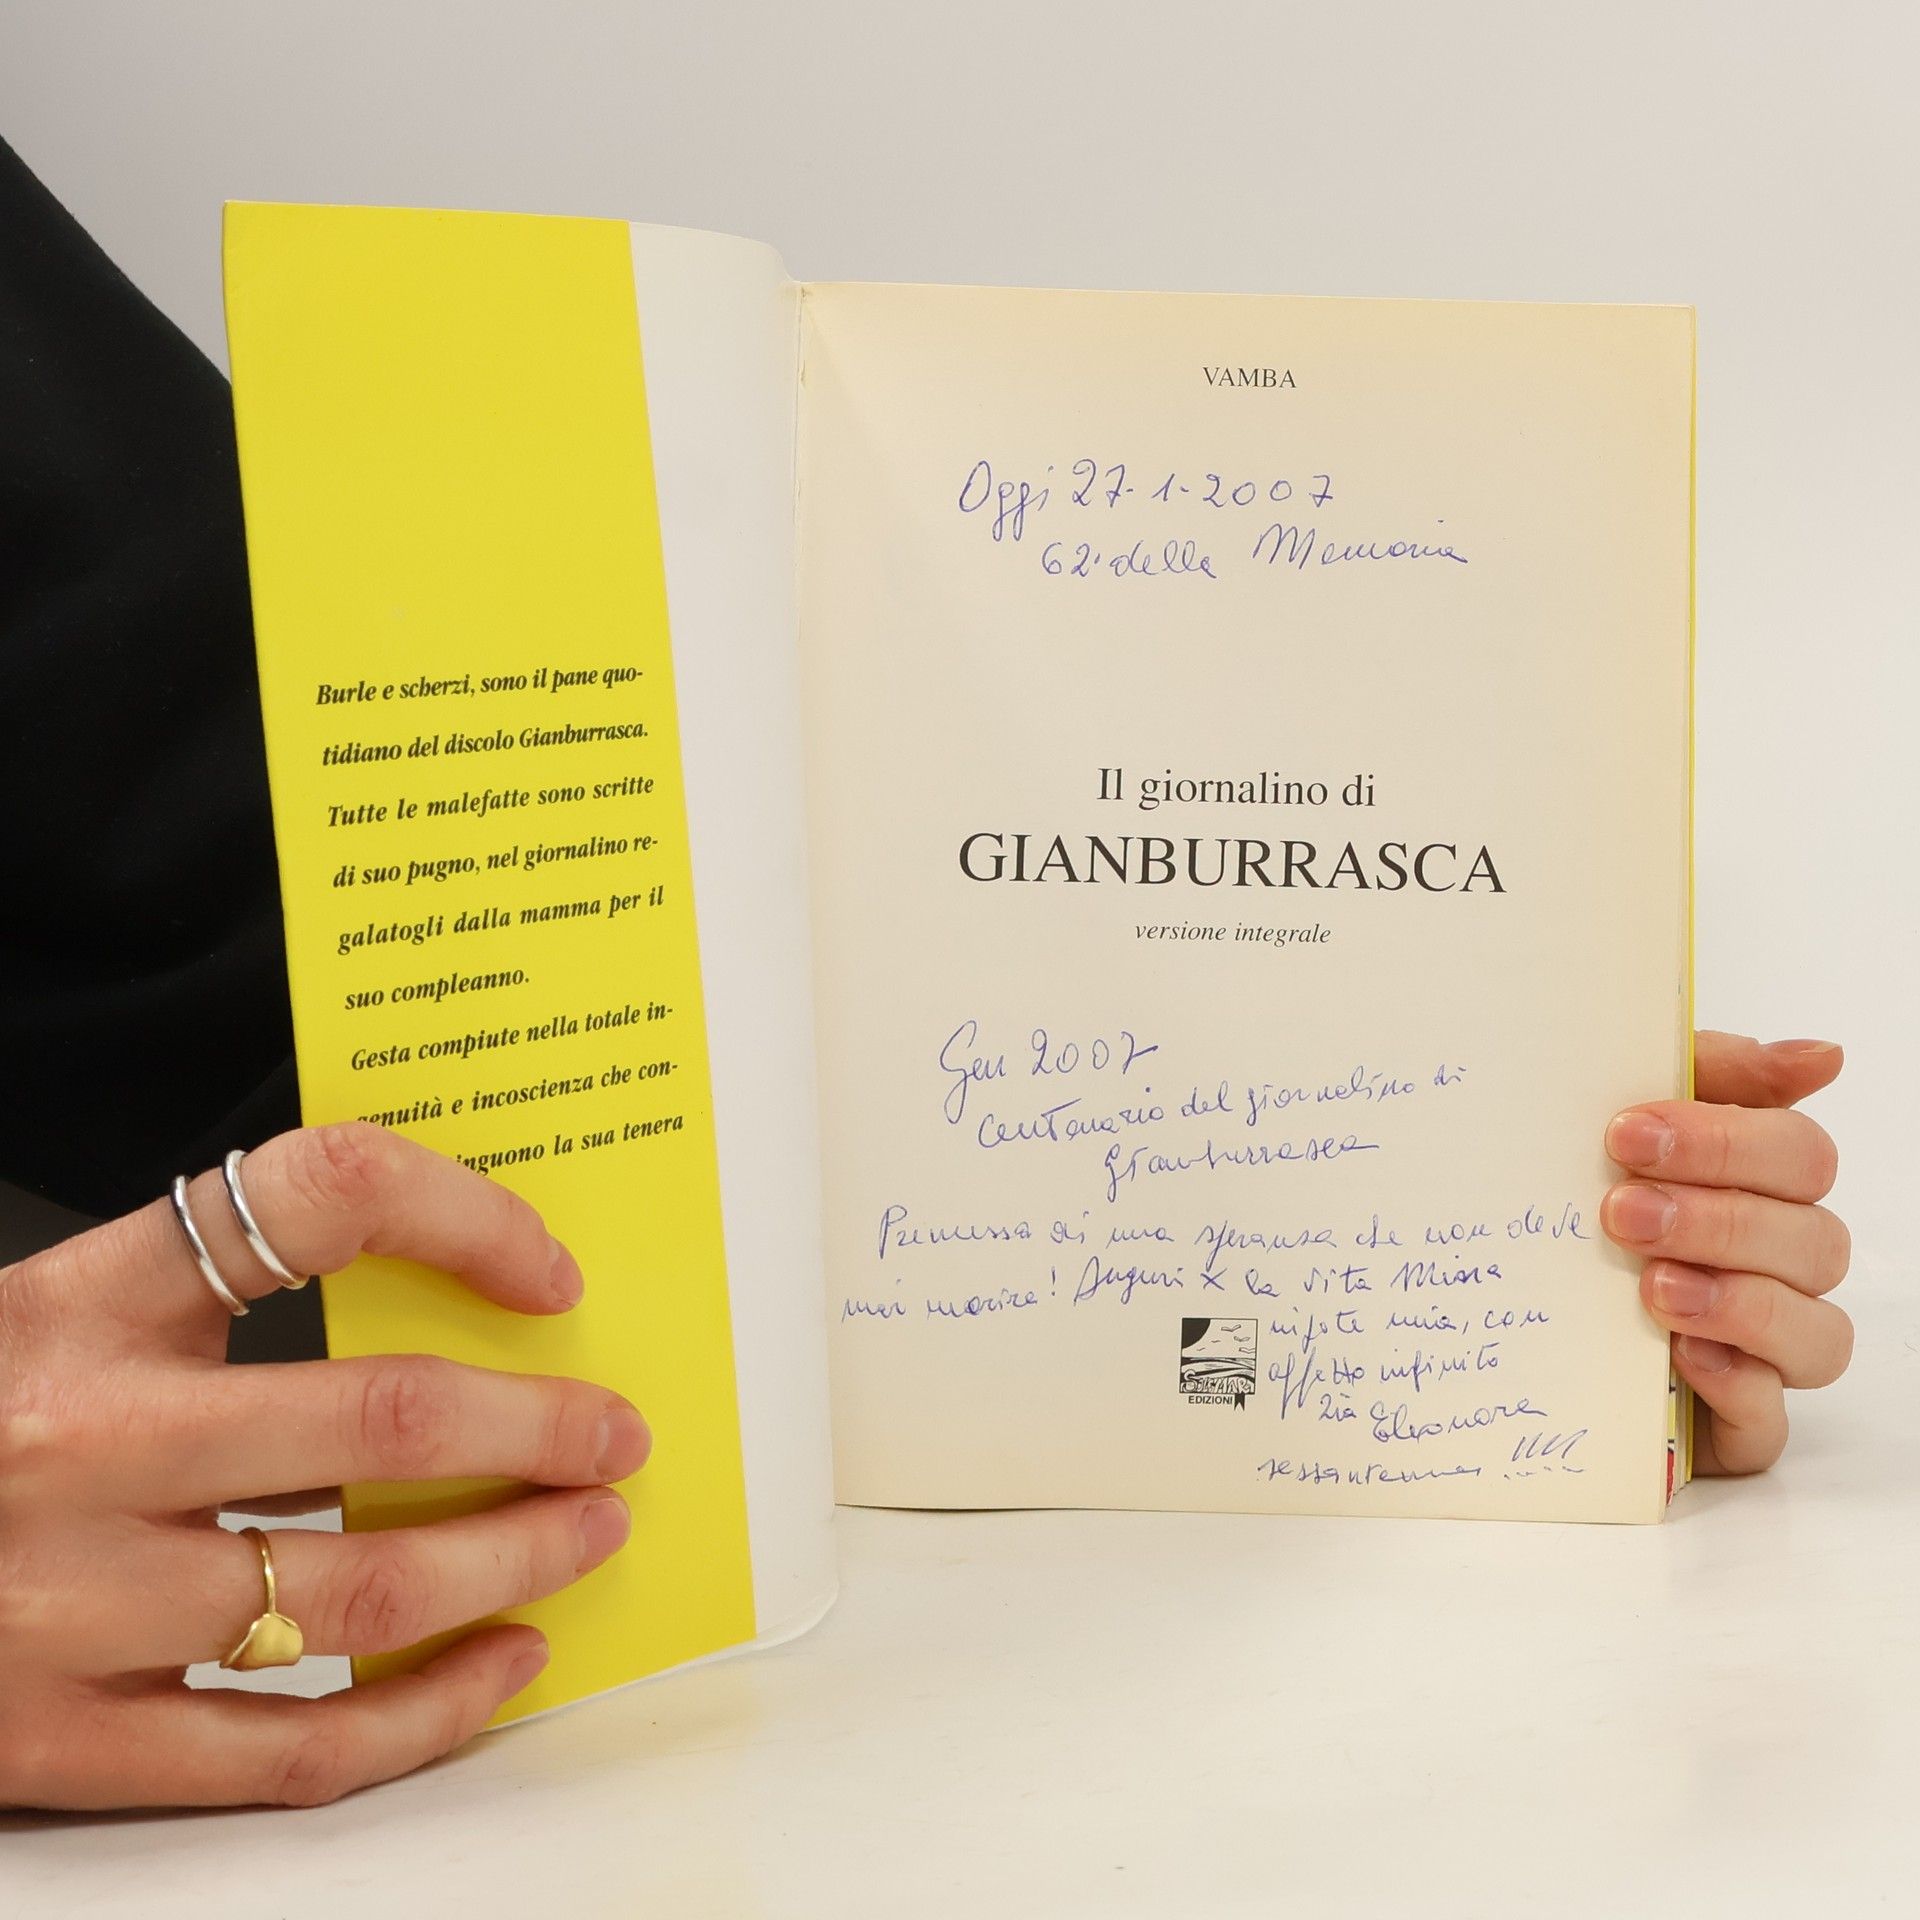 Burle e scherzi, sono il pane quo-
tidiano del discolo Gianburrasca.
Tutte le malefatte sono scritte
di suo pugno, nel giornalino re-
galatogli dalla mamma per il
suo compleanno.
Gesta compiute nella totale in-
genuità e incoscienza che con-
inguono la sua tenera
VAMBA
Oggi 27-1-2007
62° della Memoria
Il giornalino di
GIANBURRASCA
versione integrale
Gen 2007
Centenario del giornalino di
Gianburrasca
Premessa di una speranza che non deve
mai morire! Auguri x la vita
nipote mia, con
affetto infinito
zia Eleonora
sessantenne
EDIZIONI